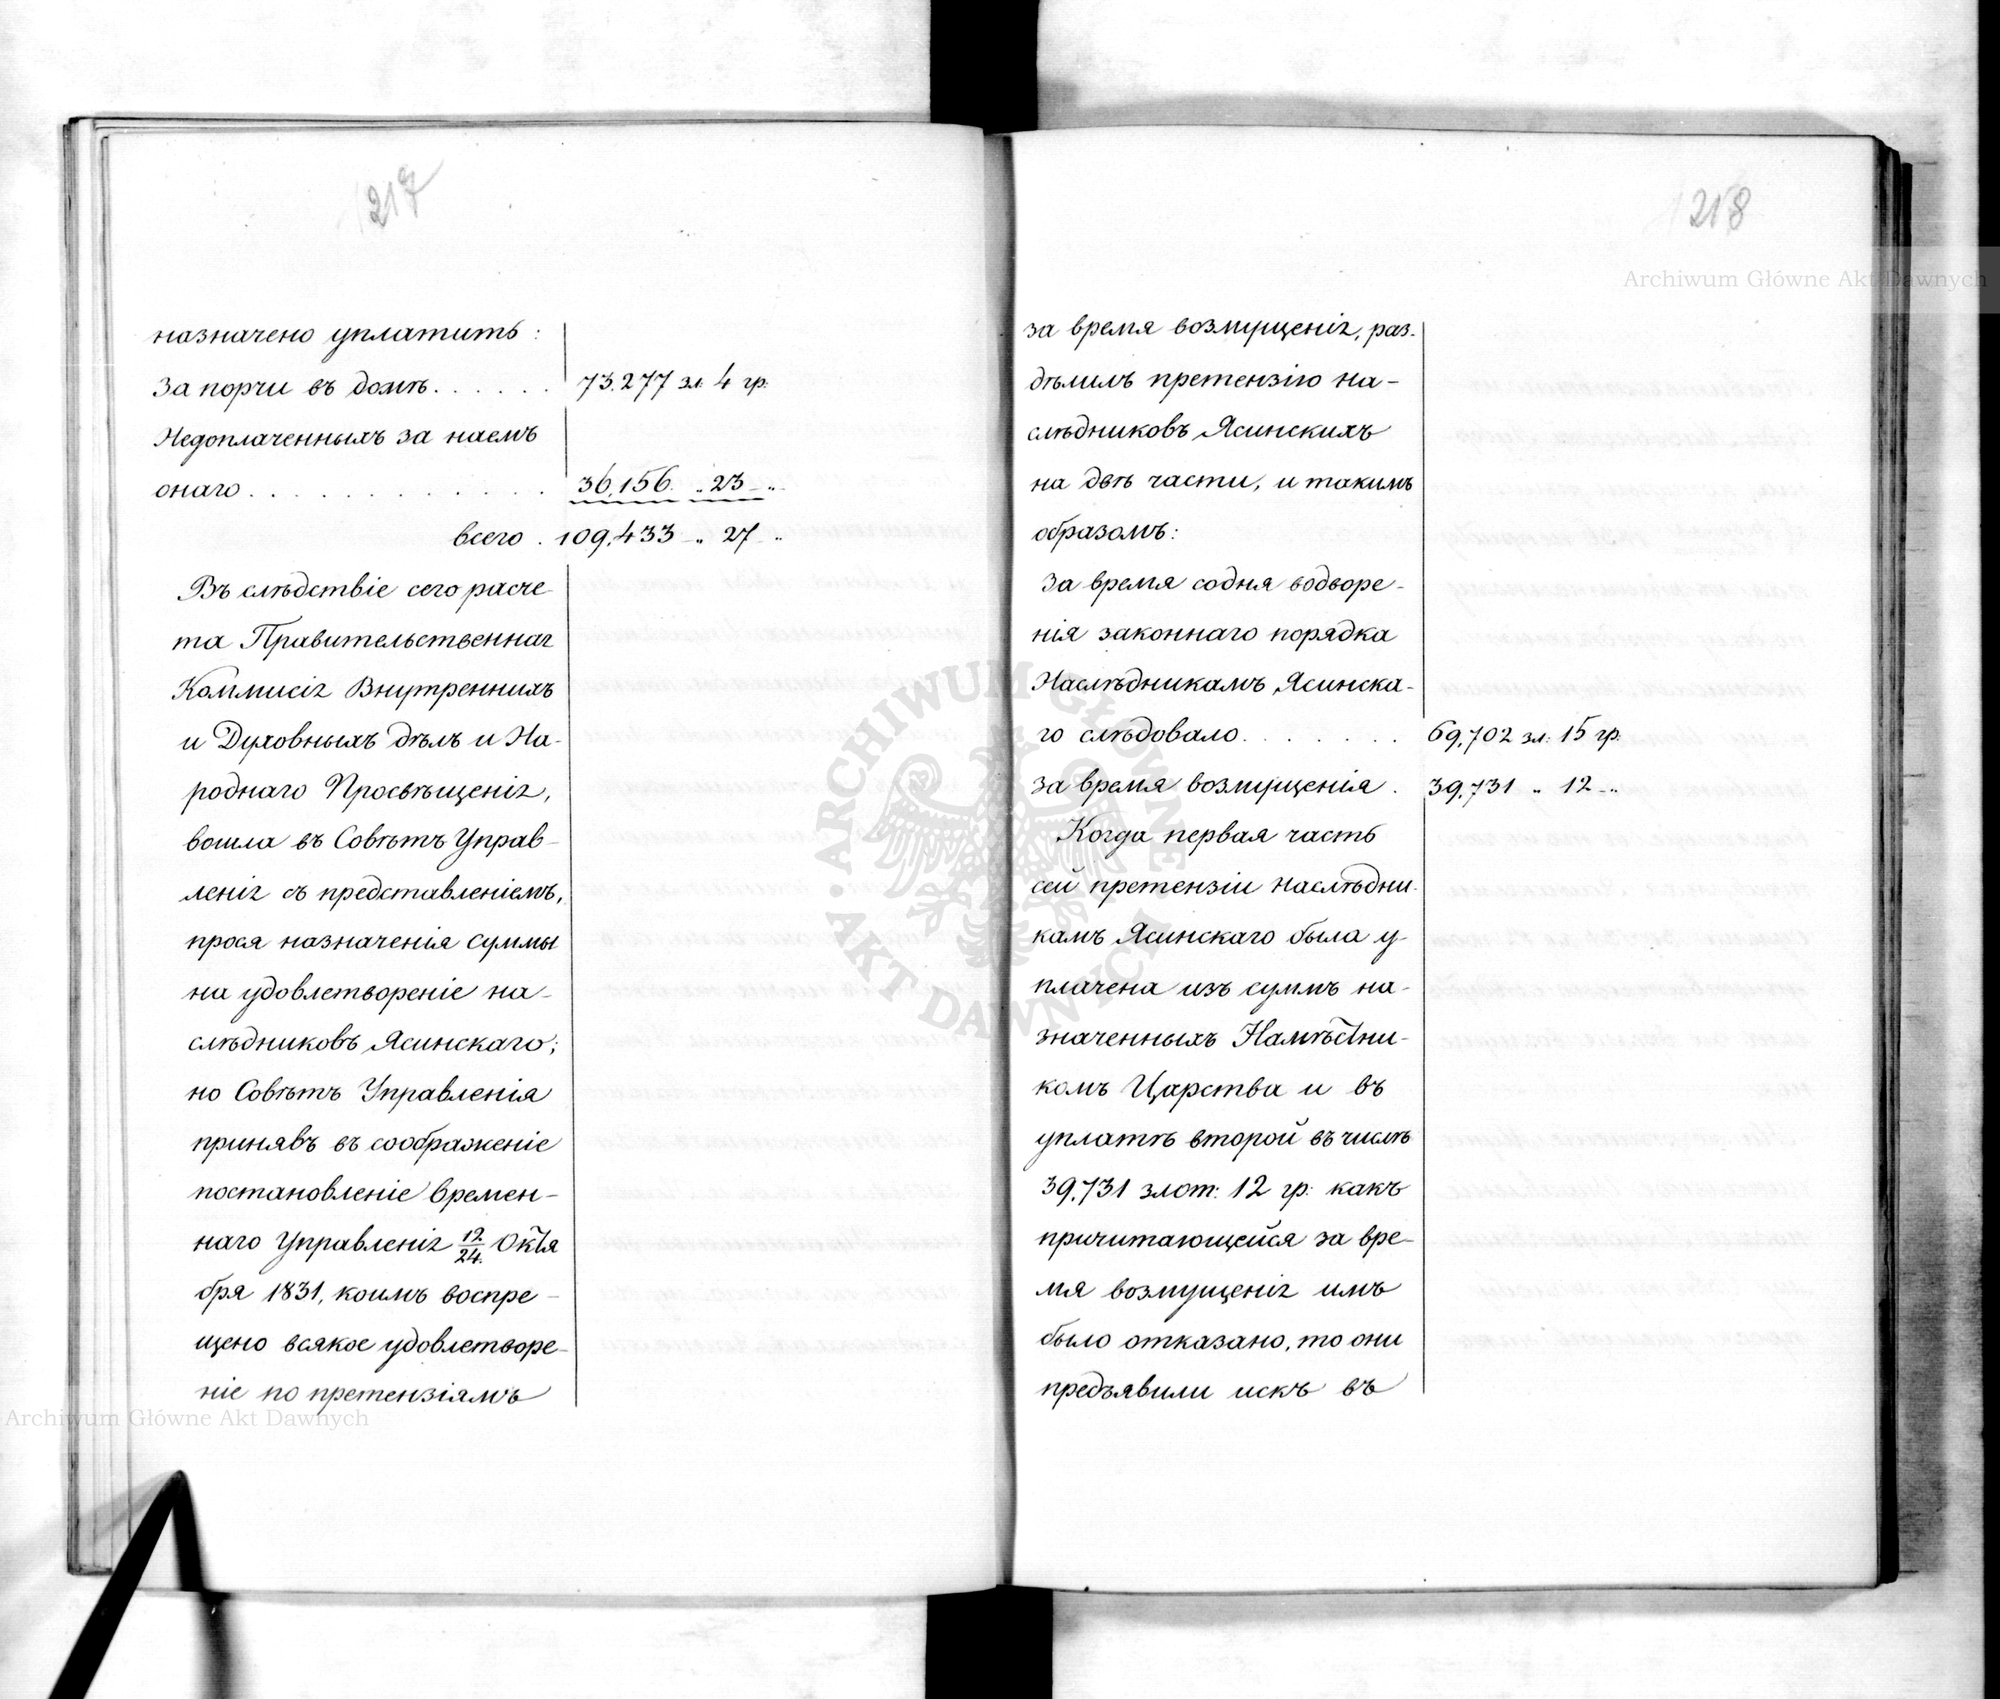 217
назначено уплатить:
За порчи въ домѣ. . . . . . 73.277 зл. 4 гр.
Недоплаченныхъ за наемъ
онаго. . . . . . . . . . . . 36,156. „ 23 „
всего . 109,433 „ 27 „
Въ слѣдствіе сего расче-
та Правительственная
Коммисія Внутреннихъ
и Духовныхъ дѣлъ и На-
роднаго Просвѣщенія,
вошла въ Совѣтъ Управ-
ленія съ представленіемъ,
прося назначенія суммы
на удовлетвореніе на-
слѣдниковъ Ясинскаго;
но Совѣтъ Управленія
принявъ въ соображеніе
постановленіе времен-
наго Управленія 12/24. Октя
бря 1831, коимъ воспре-
щено всякое удовлетворе-
ніе по претензіямъ
218
за время возмущенія, раз-
дѣлилъ претензію на-
слѣдниковъ Ясинскихъ
на двѣ части, и такимъ
образомъ:
За время содня водворе-
нія законнаго порядка
Наслѣдникамъ Ясинска-
го слѣдовало. . . . . . . 69,702 зл: 15 гр.
за время возмущенія . 39,731 „ 12 „
Когда первая часть
сей претензіи наслѣдни-
камъ Ясинскаго была у-
плачена изъ суммъ на-
значенныхъ Намѣстни-
комъ Царства и въ
уплатѣ второй въ числѣ
39,731 злот: 12 гр: какъ
причитающейся за вре-
мя возмущенія имъ
было отказано, то они
предъявили искъ въ
Archiwum Główne Akt Dawnych
Archiwum Główne Akt Dawnych
ARCHIWUM GŁÓWNE AKT DAWNYCH